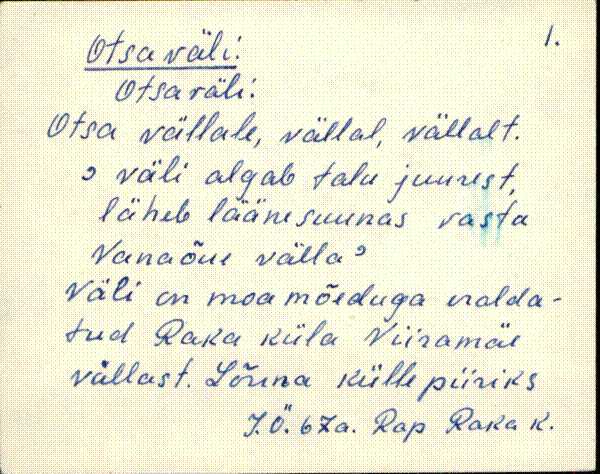 1.
Otsaväli:
Otsaväli:
Otsa vällale, vällal, vällalt.
, väli algab talu juurest,
läheb läänesuunas vasta
Vanaõue välla,
Väli on moamõeduga eralda-
tud Raka küla Niiramäe
vällast. Lõuna külle piiriks
J.Ö. 67a. Rap Raka k.